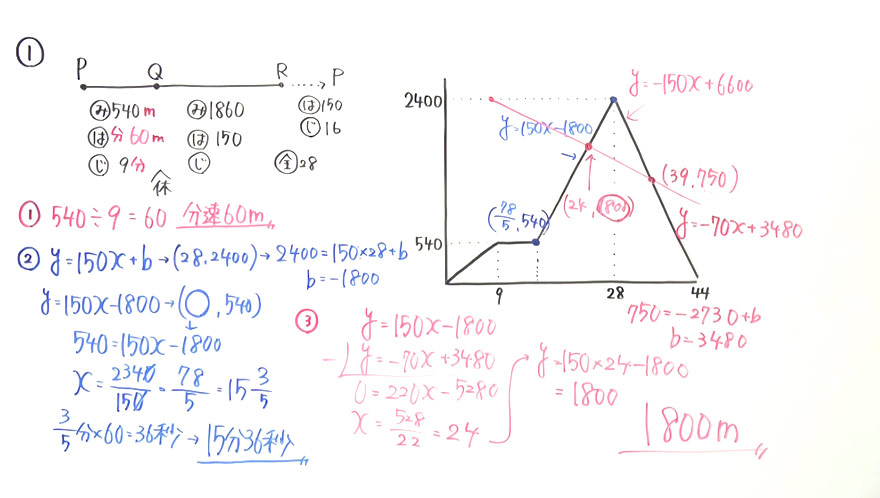 ①
P Q R P
み540m み1860 は150
は分60m は150 じ16
じ9分 じ 全28
休
① 540÷9=60 分速60m
② y=150x+b→(28.2400)→2400=150×28+b
b=-1800
y=150x-1800→(○,540)
540=150x-1800
x=2340/150=78/5=15 3/5
3/5分×60=36秒→15分36秒
③ y=150x-1800
-) y=-70x+3480
0=220x-5280
x=528/22=24
y=150×24-1800
=1800
1800m
2400
540
9 28 44
y=-150x+6600
y=150x-1800
(78/5,540)
(24,1800)
(39,750)
y=-70x+3480
750=-2730+b
b=3480